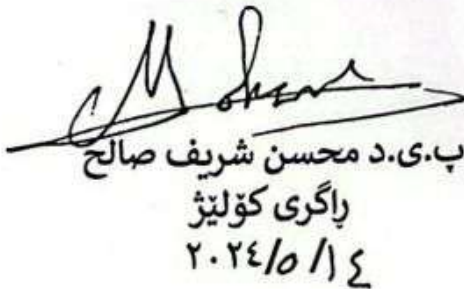 پ.ی.د محسن شریف صالح
ڕاگری کۆلێژ
٢٠٢٤/٥/١٤